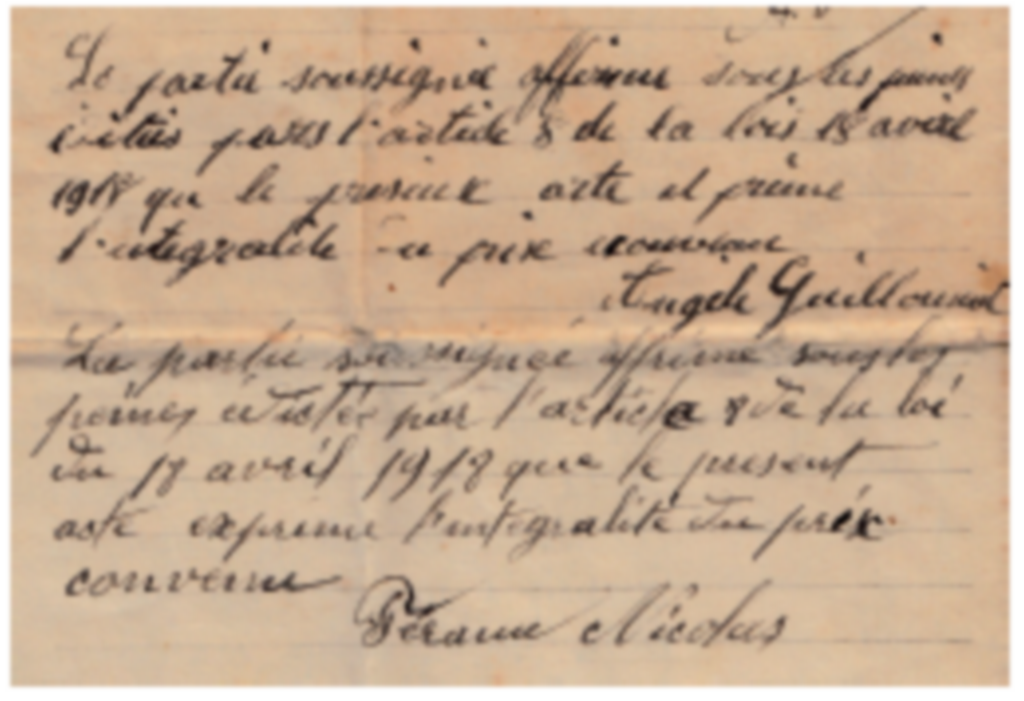 La partie soussigné affirme sous les peines
édités par l'article 8 de la lois 18 avril
1918 que le present acte exprime
l'integralité du prix convenu
Angèle Guillou
La partie soussigné affirme sous les
peines édictée par l'article 8 de la loi
du 18 avril 1918 que le present
acte exprime l'integralité du prix
convenu
Nicolas